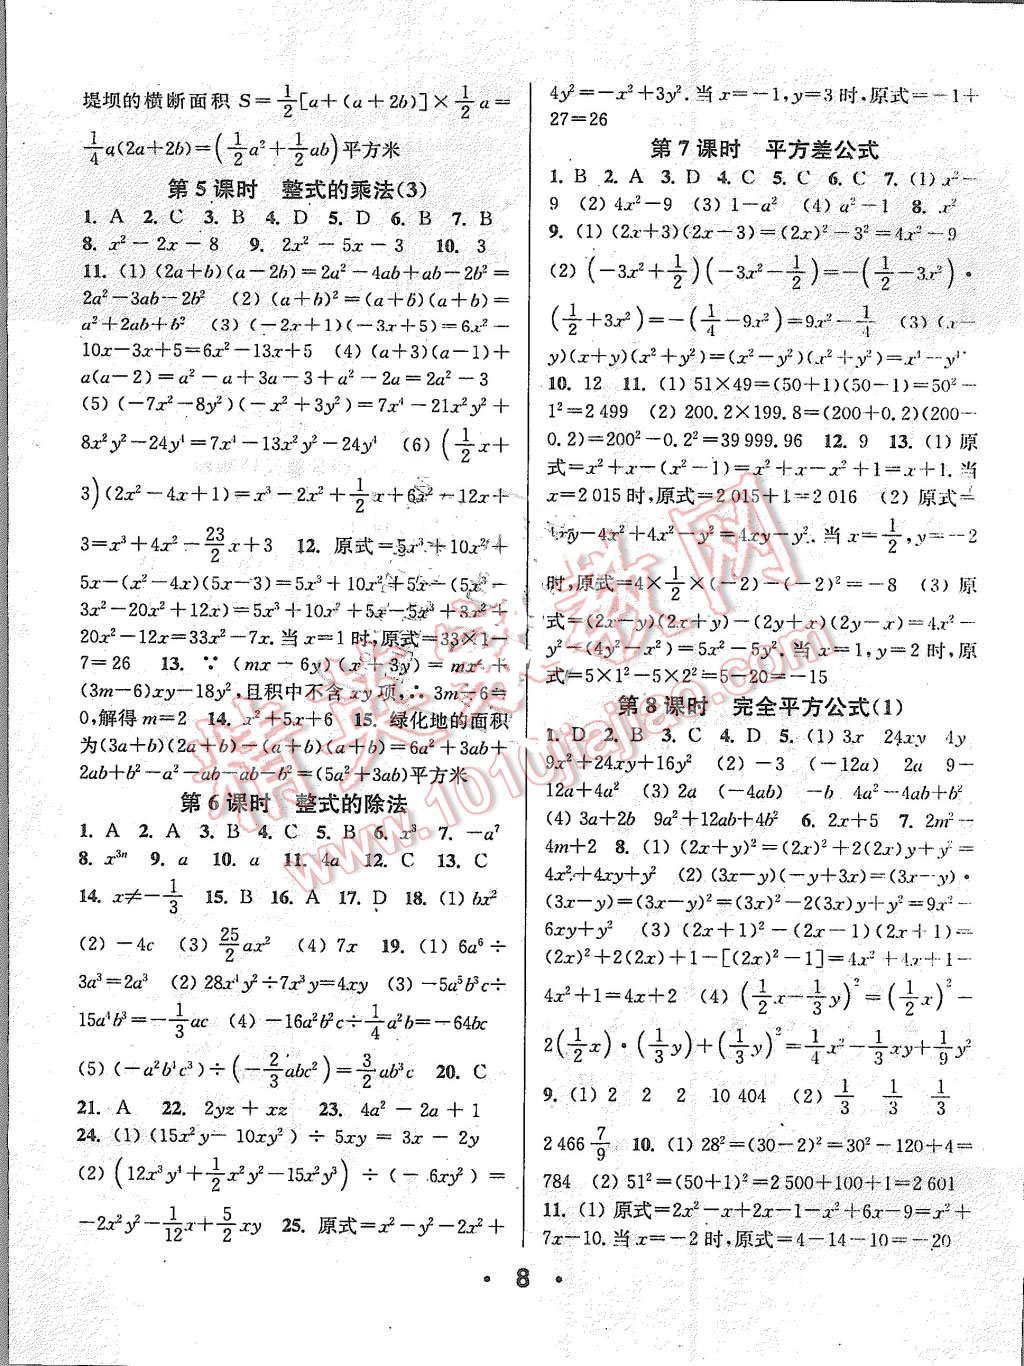 堤坝的横断面积 S=1/2[a+(a+2b)]×1/2a=
1/4a(2a+2b)=(1/2a²+1/2ab)平方米
第 5 课时 整式的乘法(3)
1. A 2. C 3. B 4. D 5. D 6. B 7. B
8. x²-2x-8 9. 2x²-5x-3 10. 3
11. (1) (2a+b)(a-2b)=2a²-4ab+ab-2b²=
2a²-3ab-2b² (2) (a+b)²=(a+b)(a+b)=
a²+2ab+b² (3) (-2x+1)(-3x+5)=6x²-
10x-3x+5=6x²-13x+5 (4) (a+3)(a-1)+
a(a-2)=a²-a+3a-3+a²-2a=2a²-3
(5) (-7x²-8y²)(-x²+3y²)=7x⁴-21x²y²+
8x²y²-24y⁴=7x⁴-13x²y²-24y⁴ (6) (1/2x+
3)(2x²-4x+1)=x³-2x²+1/2x+6x²-12x+
3=x³+4x²-23/2x+3 12. 原式=5x³+10x²+
5x-(x²-4x)(5x-3)=5x³+10x²+5x-(5x³-
3x²-20x²+12x)=5x³+10x²+5x-5x³+
20x²-12x=33x²-7x.当 x=1 时,原式=33×1-
7=26 13. ∵ (mx-6y)(x+3y)=mx²+
(3m-6)xy-18y²,且积中不含 xy 项,∴ 3m-6=
0,解得 m=2 14. x²+5x+6 15. 绿化地的面积
为(3a+b)(2a+b)-(a+b)(a+b)=6a²+3ab+
2ab+b²-a²-ab-ab-b²=(5a²+3ab)平方米
第 6 课时 整式的除法
1. A 2. A 3. B 4. C 5. B 6. x³ 7. -a⁷
8. x³ⁿ 9. a 10. a 11. 4a 12. C 13. C
14. x≠-1/3 15. B 16. A 17. D 18. (1) bx²
(2) -4c (3) 25/2ax² (4) 7x 19. (1) 6a⁶÷
3a³=2a³ (2) 28x⁴y²÷7x³y=4xy (3) -5a⁵b³c÷
15a⁴b³=-1/3ac (4) -16a²b²c÷1/4a²b=-64bc
(5) (-a²b⁴c³)÷(-2/3abc²)=3/2ab³c 20. C
21. A 22. 2yz+xz 23. 4a²-2a+1
24. (1) (15x²y-10xy²)÷5xy=3x-2y
(2) (12x³y⁴+1/2x²y²-15x²y³)÷(-6xy²)=
-2x²y²-1/12x+5/2xy 25. 原式=x²-y²-2x²+
4y²=-x²+3y².当 x=-1,y=3 时,原式=-1+
27=26
第 7 课时 平方差公式
1. B 2. A 3. D 4. C 5. C 6. C 7. (1) x²-
9 (2) 4x²-9 (3) 1-a² (4) a²-1 8. x²
9. (1) (2x+3)(2x-3)=(2x)²-3²=4x²-9
(2) (-3x²+1/2)(-3x²-1/2)=-(1/2-3x²)·
(1/2+3x²)=-(1/4-9x⁴)=9x⁴-1/4 (3) (x-
y)(x+y)(x²+y²)=(x²-y²)(x²+y²)=x⁴-y⁴
10. 12 11. (1) 51×49=(50+1)(50-1)=50²-
1²=2 499 (2) 200.2×199.8=(200+0.2)(200-
0.2)=200²-0.2²=39 999.96 12. 9 13. (1) 原
式=x²+x-(x²-1)=x²+x-x²+1=x+1.当
x=2 015 时,原式=2 015+1=2 016 (2) 原式=
4xy-4x²+4x²-y²=4xy-y².当 x=1/2,y=-2
时,原式=4×1/2×(-2)-(-2)²=-8 (3) 原
式=(2x-y)(2x+y)-(2y+x)(2y-x)=4x²-
y²-(4y²-x²)=5x²-5y².当 x=1,y=2 时,原
式=5×1²-5×2²=5-20=-15
第 8 课时 完全平方公式(1)
1. D 2. B 3. C 4. D 5. (1) 3x 24xy 4y
9x²+24xy+16y² (2) -3 (-12a) 2a 9-
12a+4a² (3) 2a (-4ab) -b 4a²-4ab+b²
(4) 3a+2b 9a²+12ab+4b² 6. 2x+5 7. 2m²-
4m+2 8. (1) (2x+y)²=(2x)²+2(2x)y+y²=
4x²+4xy+y² (2) (3x-y)(-y+3x)=(3x-y)·
(3x-y)=(3x-y)²=(3x)²-2(3x)y+y²=9x²-
6xy+y² (3) (2x+1)²-(2x-1)(2x+1)=
(2x)²+2(2x)+1-[(2x)²-1]=4x²+4x+1-
4x²+1=4x+2 (4) (1/2x-1/3y)²=(1/2x)²-
2(1/2x)·(1/3y)+(1/3y)²=1/4x²-1/3xy+1/9y²
9. (1) 2 2 2 10 404 (2) 1/3 1/3 1/3
2 466 7/9 10. (1) 28²=(30-2)²=30²-120+4=
784 (2) 51²=(50+1)²=2 500+100+1=2 601
11. (1) 原式=2x²-x+2x-1-x²+6x-9=x²+
7x-10.当 x=-2 时,原式=4-14-10=-20
· 8 ·
精英家教网
www.1010jiajiao.com